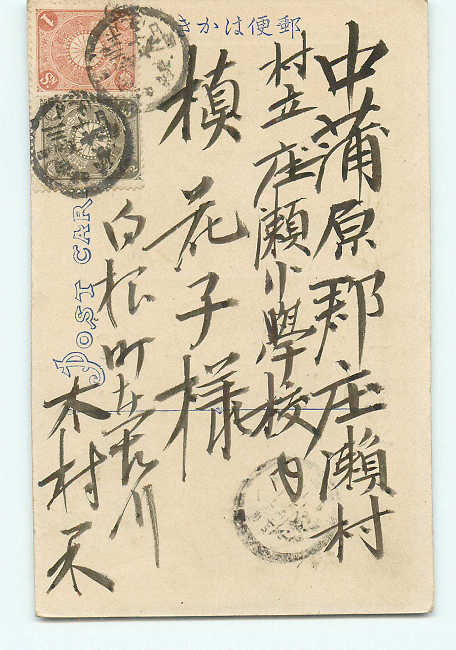 郵便はかき
中蒲原郡庄瀬村
村立庄瀬小學校内
槙花子様
白根町
木村
POST CAR